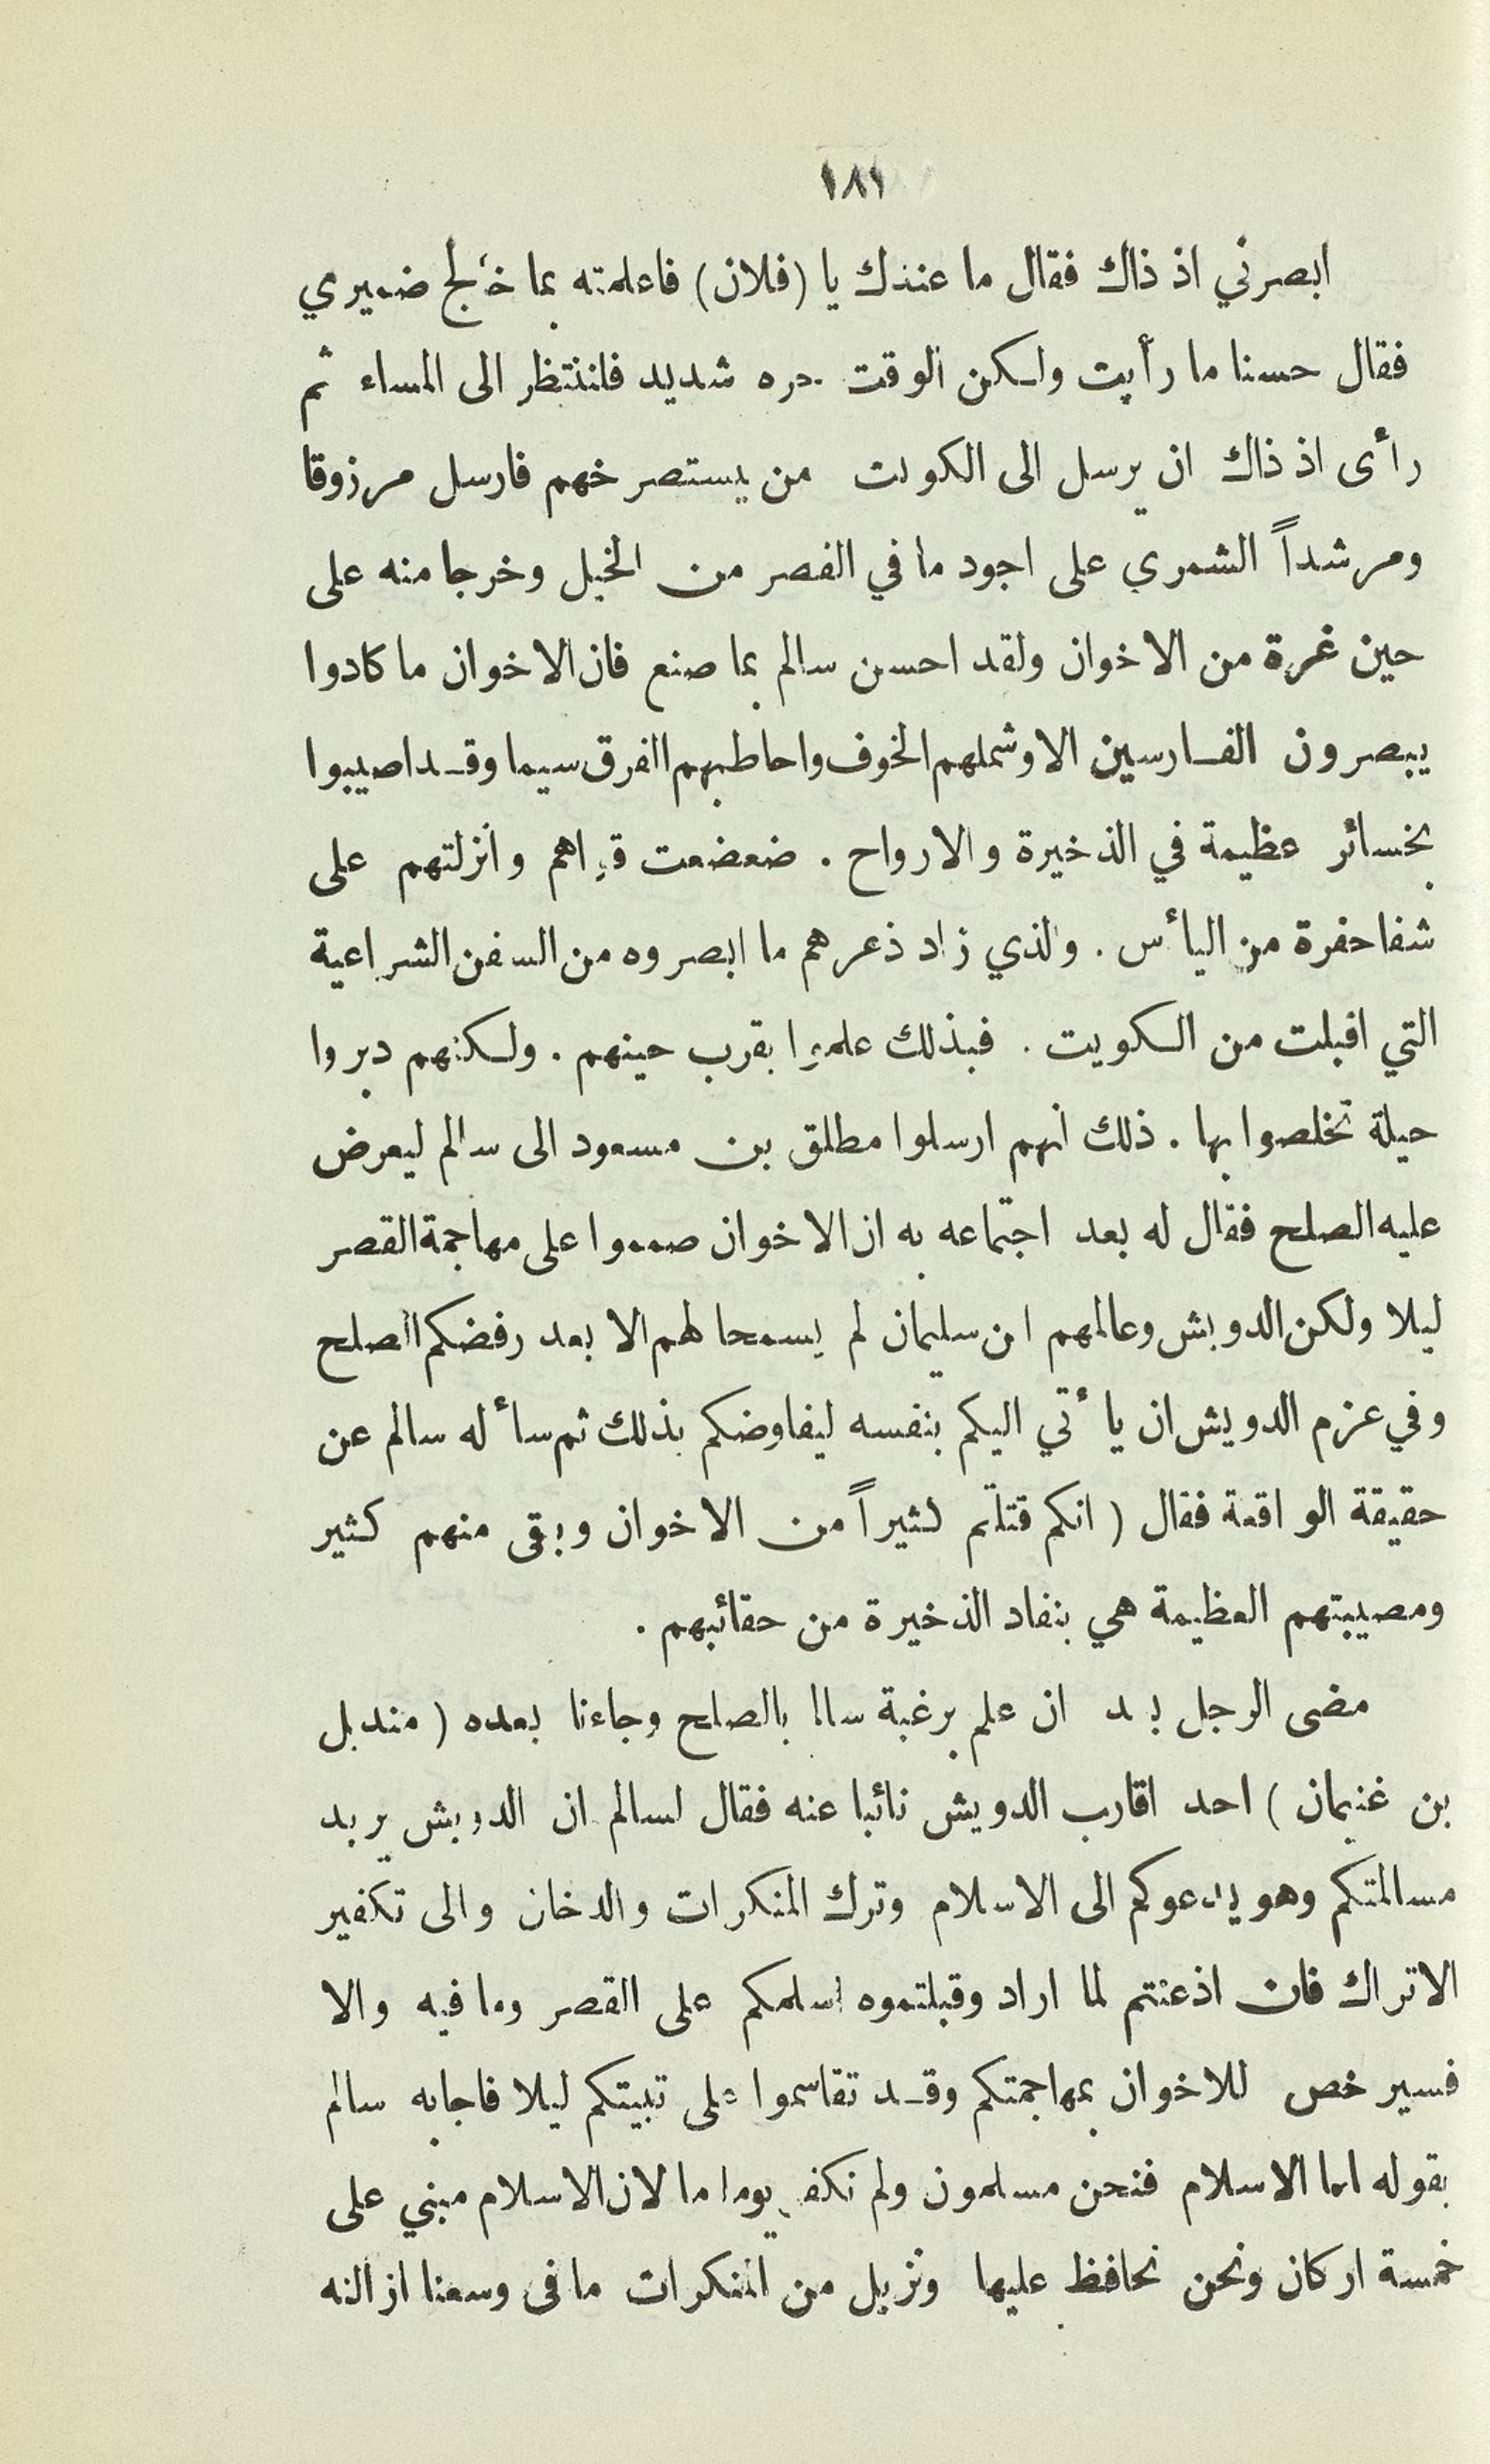 ١٨١
ابصرني اذ ذاك فقال ما عندك يا (فلان) فاعلمته بما خالج ضميري
فقال حسنا ما رأيت ولكن الوقت حره شديد فلننتظر الى المساء ثم
رأى اذ ذاك ان يرسل الى الكويت من يستصرخهم فارسل مرزوقا
ومرشداً الشمري على اجود ما في القصر من الخيل وخرجا منه على
حين غرة من الاخوان ولقد احسن سالم بما صنع فان الاخوان ما كادوا
يبصرون الفارسين الا وشملهم الخوف واحاط بهم الفرق سيما وقد اصيبوا
بخسائر عظيمة في الذخيرة والارواح . ضعضعت قواهم وانزلتهم على
شفا حفرة من اليأس . والذي زاد ذعرهم ما ابصروه من السفن الشراعية
التي اقبلت من الكويت . فبذلك علموا بقرب حينهم . ولكنهم دبروا
حيلة تخلصوا بها . ذلك انهم ارسلوا مطلق بن مسعود الى سالم ليعرض
عليه الصلح فقال له بعد اجتماعه به ان الاخوان صمموا على مهاجمة القصر
ليلا ولكن الدويش وعالمهم ابن سليمان لم يسمحا لهم الا بعد رفضكم الصلح
وفي عزم الدويش ان يأتي اليكم بنفسه ليفاوضكم بذلك ثم سأله سالم عن
حقيقة الواقعة فقال ( انكم قتلتم كثيراً من الاخوان وبقى منهم كثير
ومصيبتهم العظيمة هي بنفاد الذخيرة من حقائبهم .
مضى الرجل بعد ان علم برغبة سالم بالصلح وجاءنا بعده ( منديل
بن غنيمان ) احد اقارب الدويش نائبا عنه فقال لسالم ان الدويش يريد
مسالمتكم وهو يدعوكم الى الاسلام وترك المنكرات والدخان والى تكفير
الاتراك فان اذعنتم لما اراد وقبلتموه اسلمكم على القصر وما فيه والا
فسيرخص للاخوان بمهاجمتكم وقد تقاسموا على تبيتكم ليلا فاجابه سالم
بقوله اما الاسلام فنحن مسلمون ولم نكفر يوما ما لان الاسلام مبني على
خمسة اركان ونحن نحافظ عليها ونزيل من المنكرات ما فى وسعنا ازالته